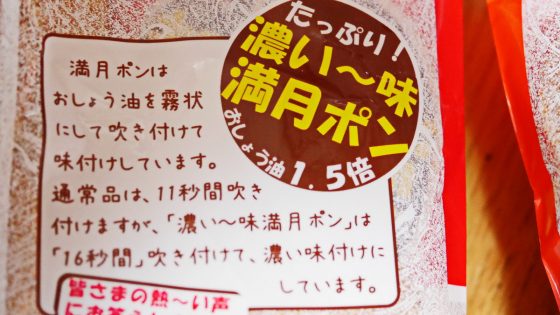 たっぷり!
濃い〜味
満月ポン
おしょう油1.5倍
満月ポンは
おしょう油を霧状
にして吹き付けて
味付けしています。
通常品は、11秒間吹き
付けますが、「濃い〜味満月ポン」は
「16秒間」吹き付けて、濃い味付けに
しています。
皆さまの熱〜い声